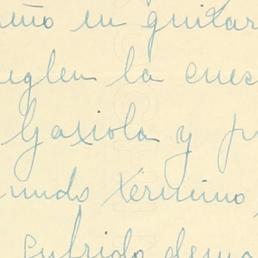 eño en guitar
eglen la cues
Gaxiola y p
undo término,
sufrido dema